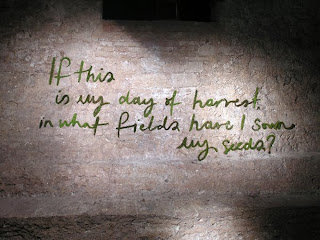 If this
is my day of harvest,
in what fields have I sown
my seeds?